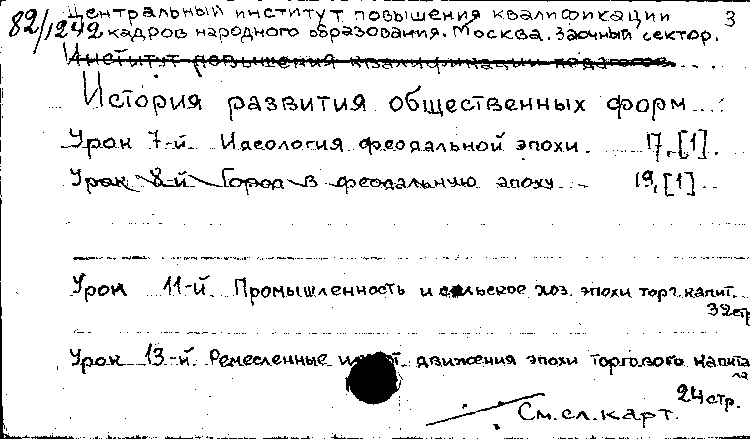 82/1242 Центральный институт повышения квалификации 3
кадров народного образования. Москва. Заочный сектор.
Институт повышения квалификации педагогов....
История развития общественных форм...
Урок 7-й. Идеология феодальной эпохи. 17, [1].
Урок 8-й Город в феодальную эпоху... 19, [1]..
Урок 11-й. Промышленность и сельское хоз. эпохи торг. капит.
32 стр
Урок 13-й. Ремесленные и движения эпохи торгового капита
ла
24 стр.
См. сл. карт.